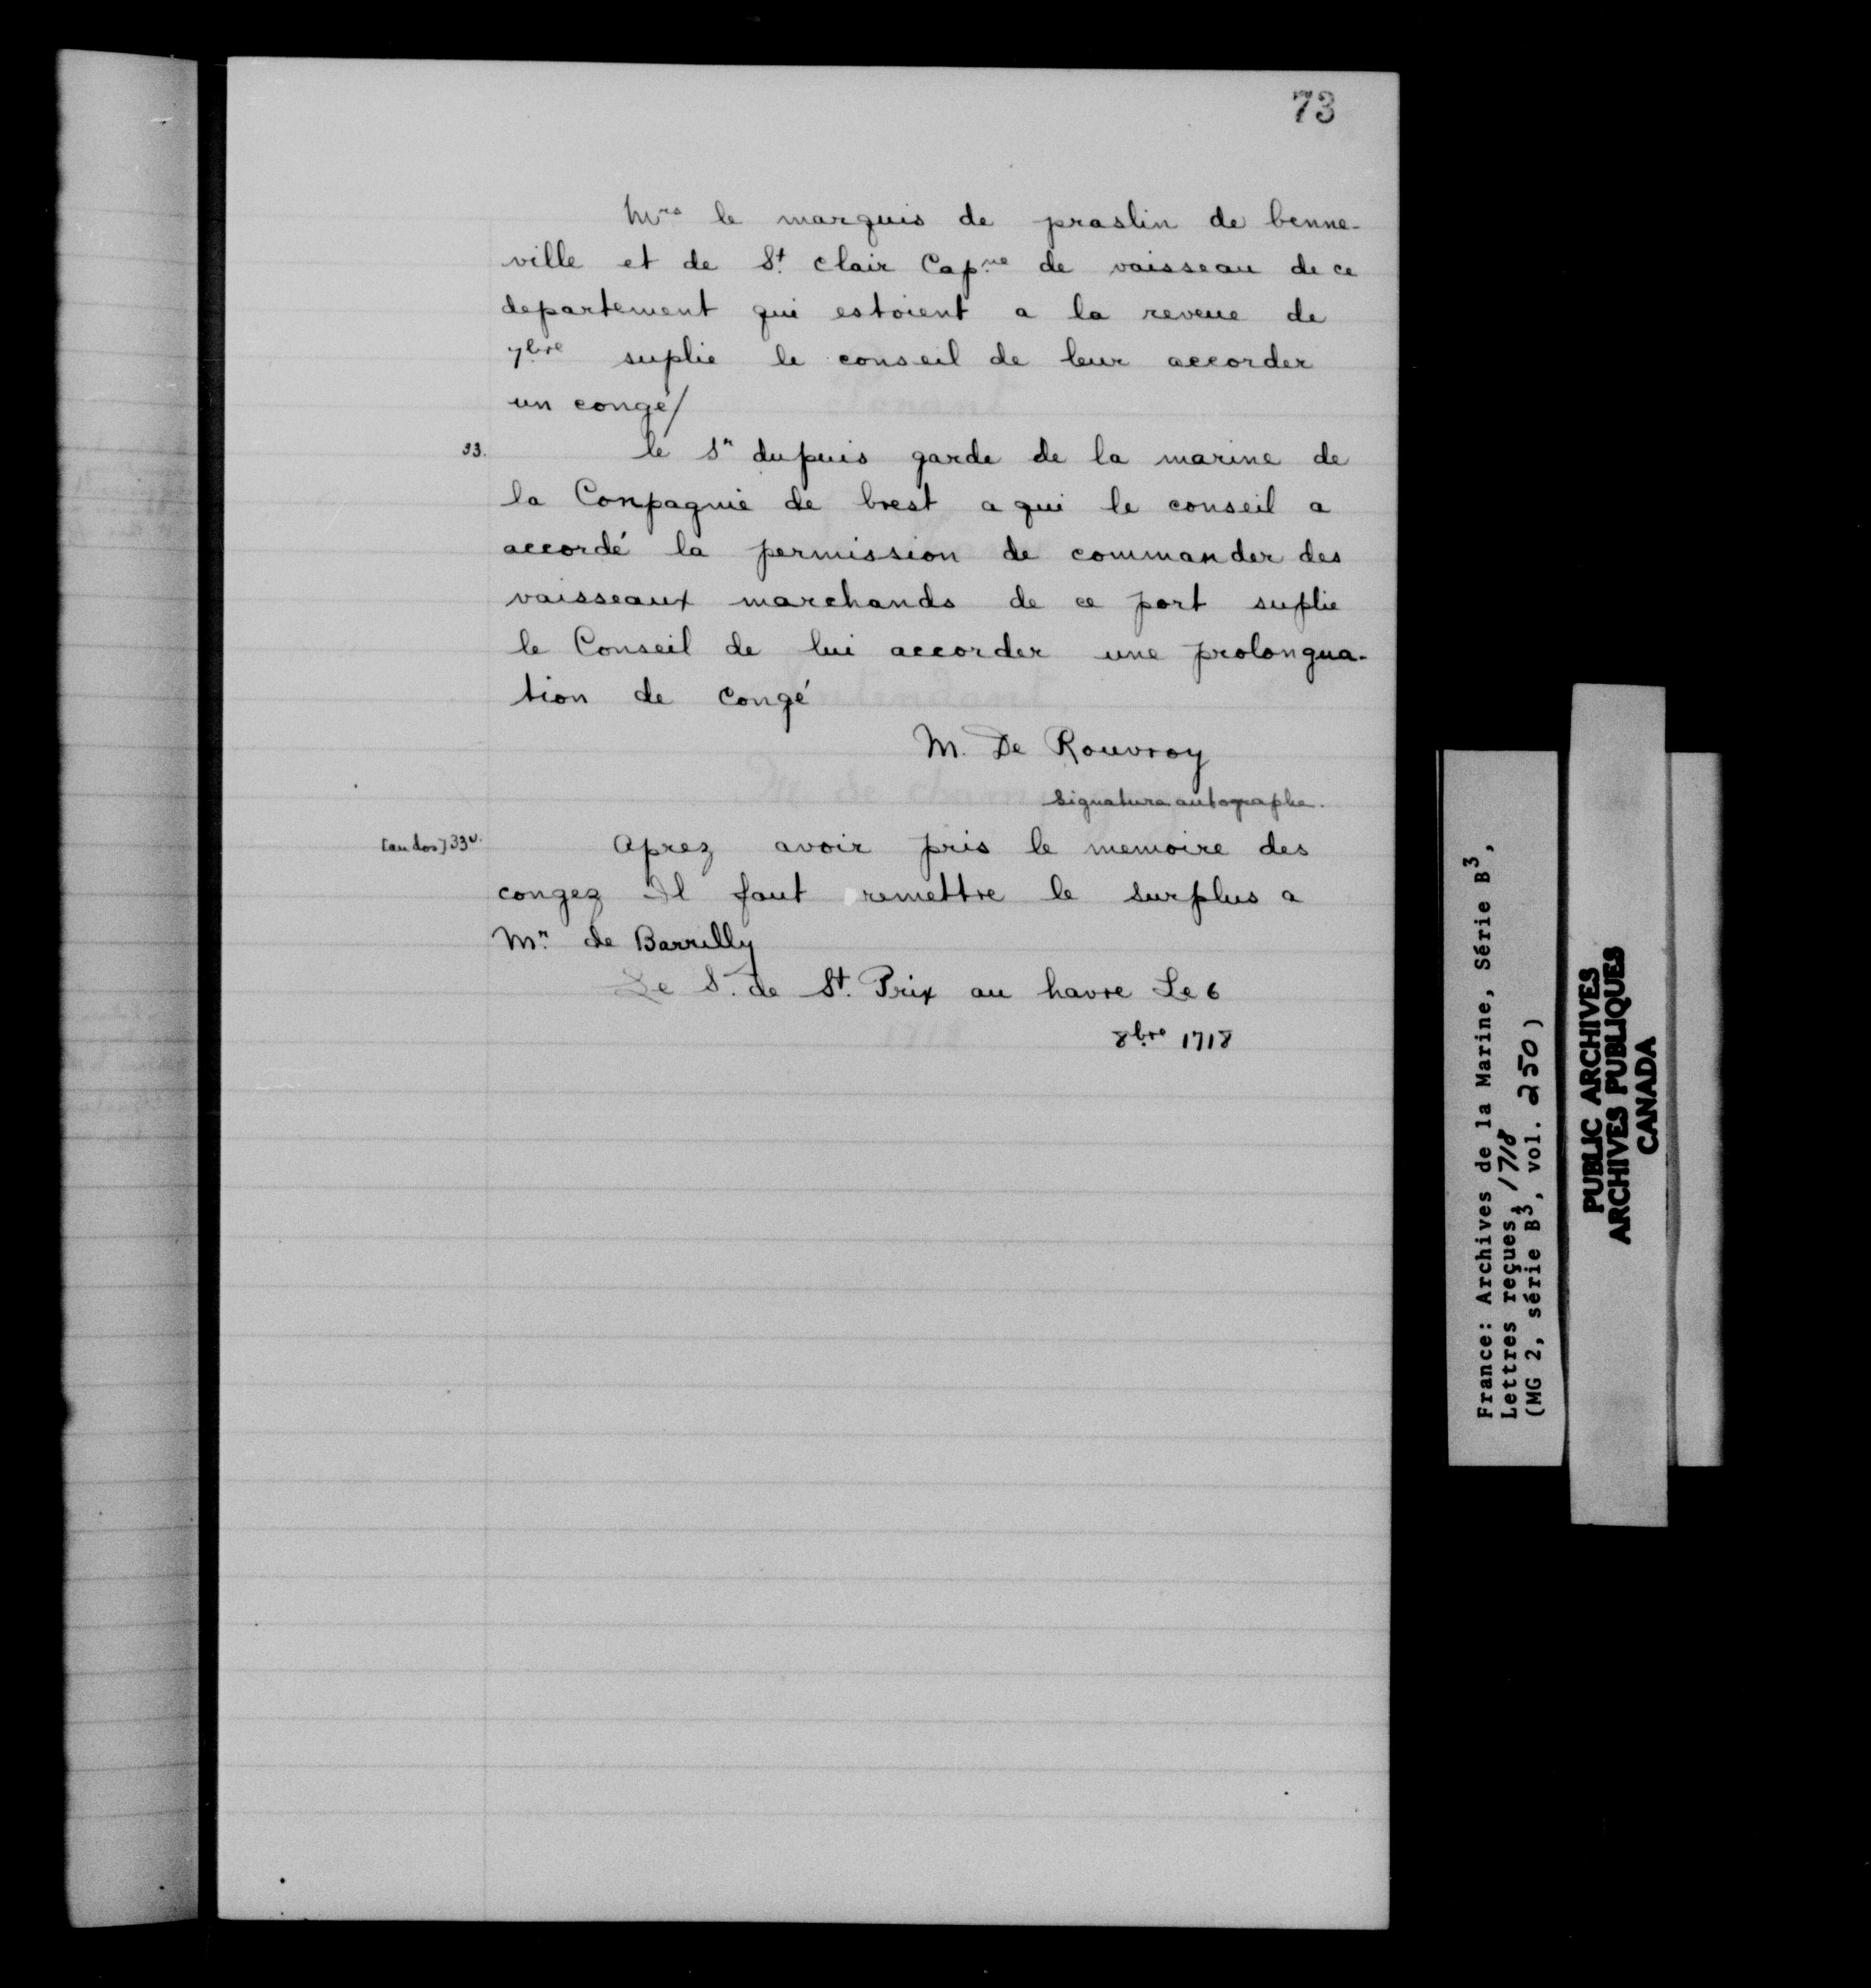 73
Mrs le marquis de praslin de benne-
ville et de St clair Capne de vaisseau de ce
departement qui estoient a la reveue de
7bre suplie le conseil de leur accorder
un congé/
33. le Sr dupuis garde de la marine de
la Conpagnie de brest a qui le conseil a
accordé la permission de commander des
vaisseaux marchands de ce port suplie
le Conseil de lui accorder une prolongua-
tion de congé
M. De Rouvroy
signature autographe.
[au dos] 33v. Aprez avoir pris le memoire des
congez Il faut remettre le surplus a
Mr de Barrilly
Le S. de St. Prix au havre Le 6
8bre 1718
France: Archives de la Marine, Série B3,
Lettres reçues, 1718
(MG 2, série B3, vol. 250)
PUBLIC ARCHIVES
ARCHIVES PUBLIQUES
CANADA